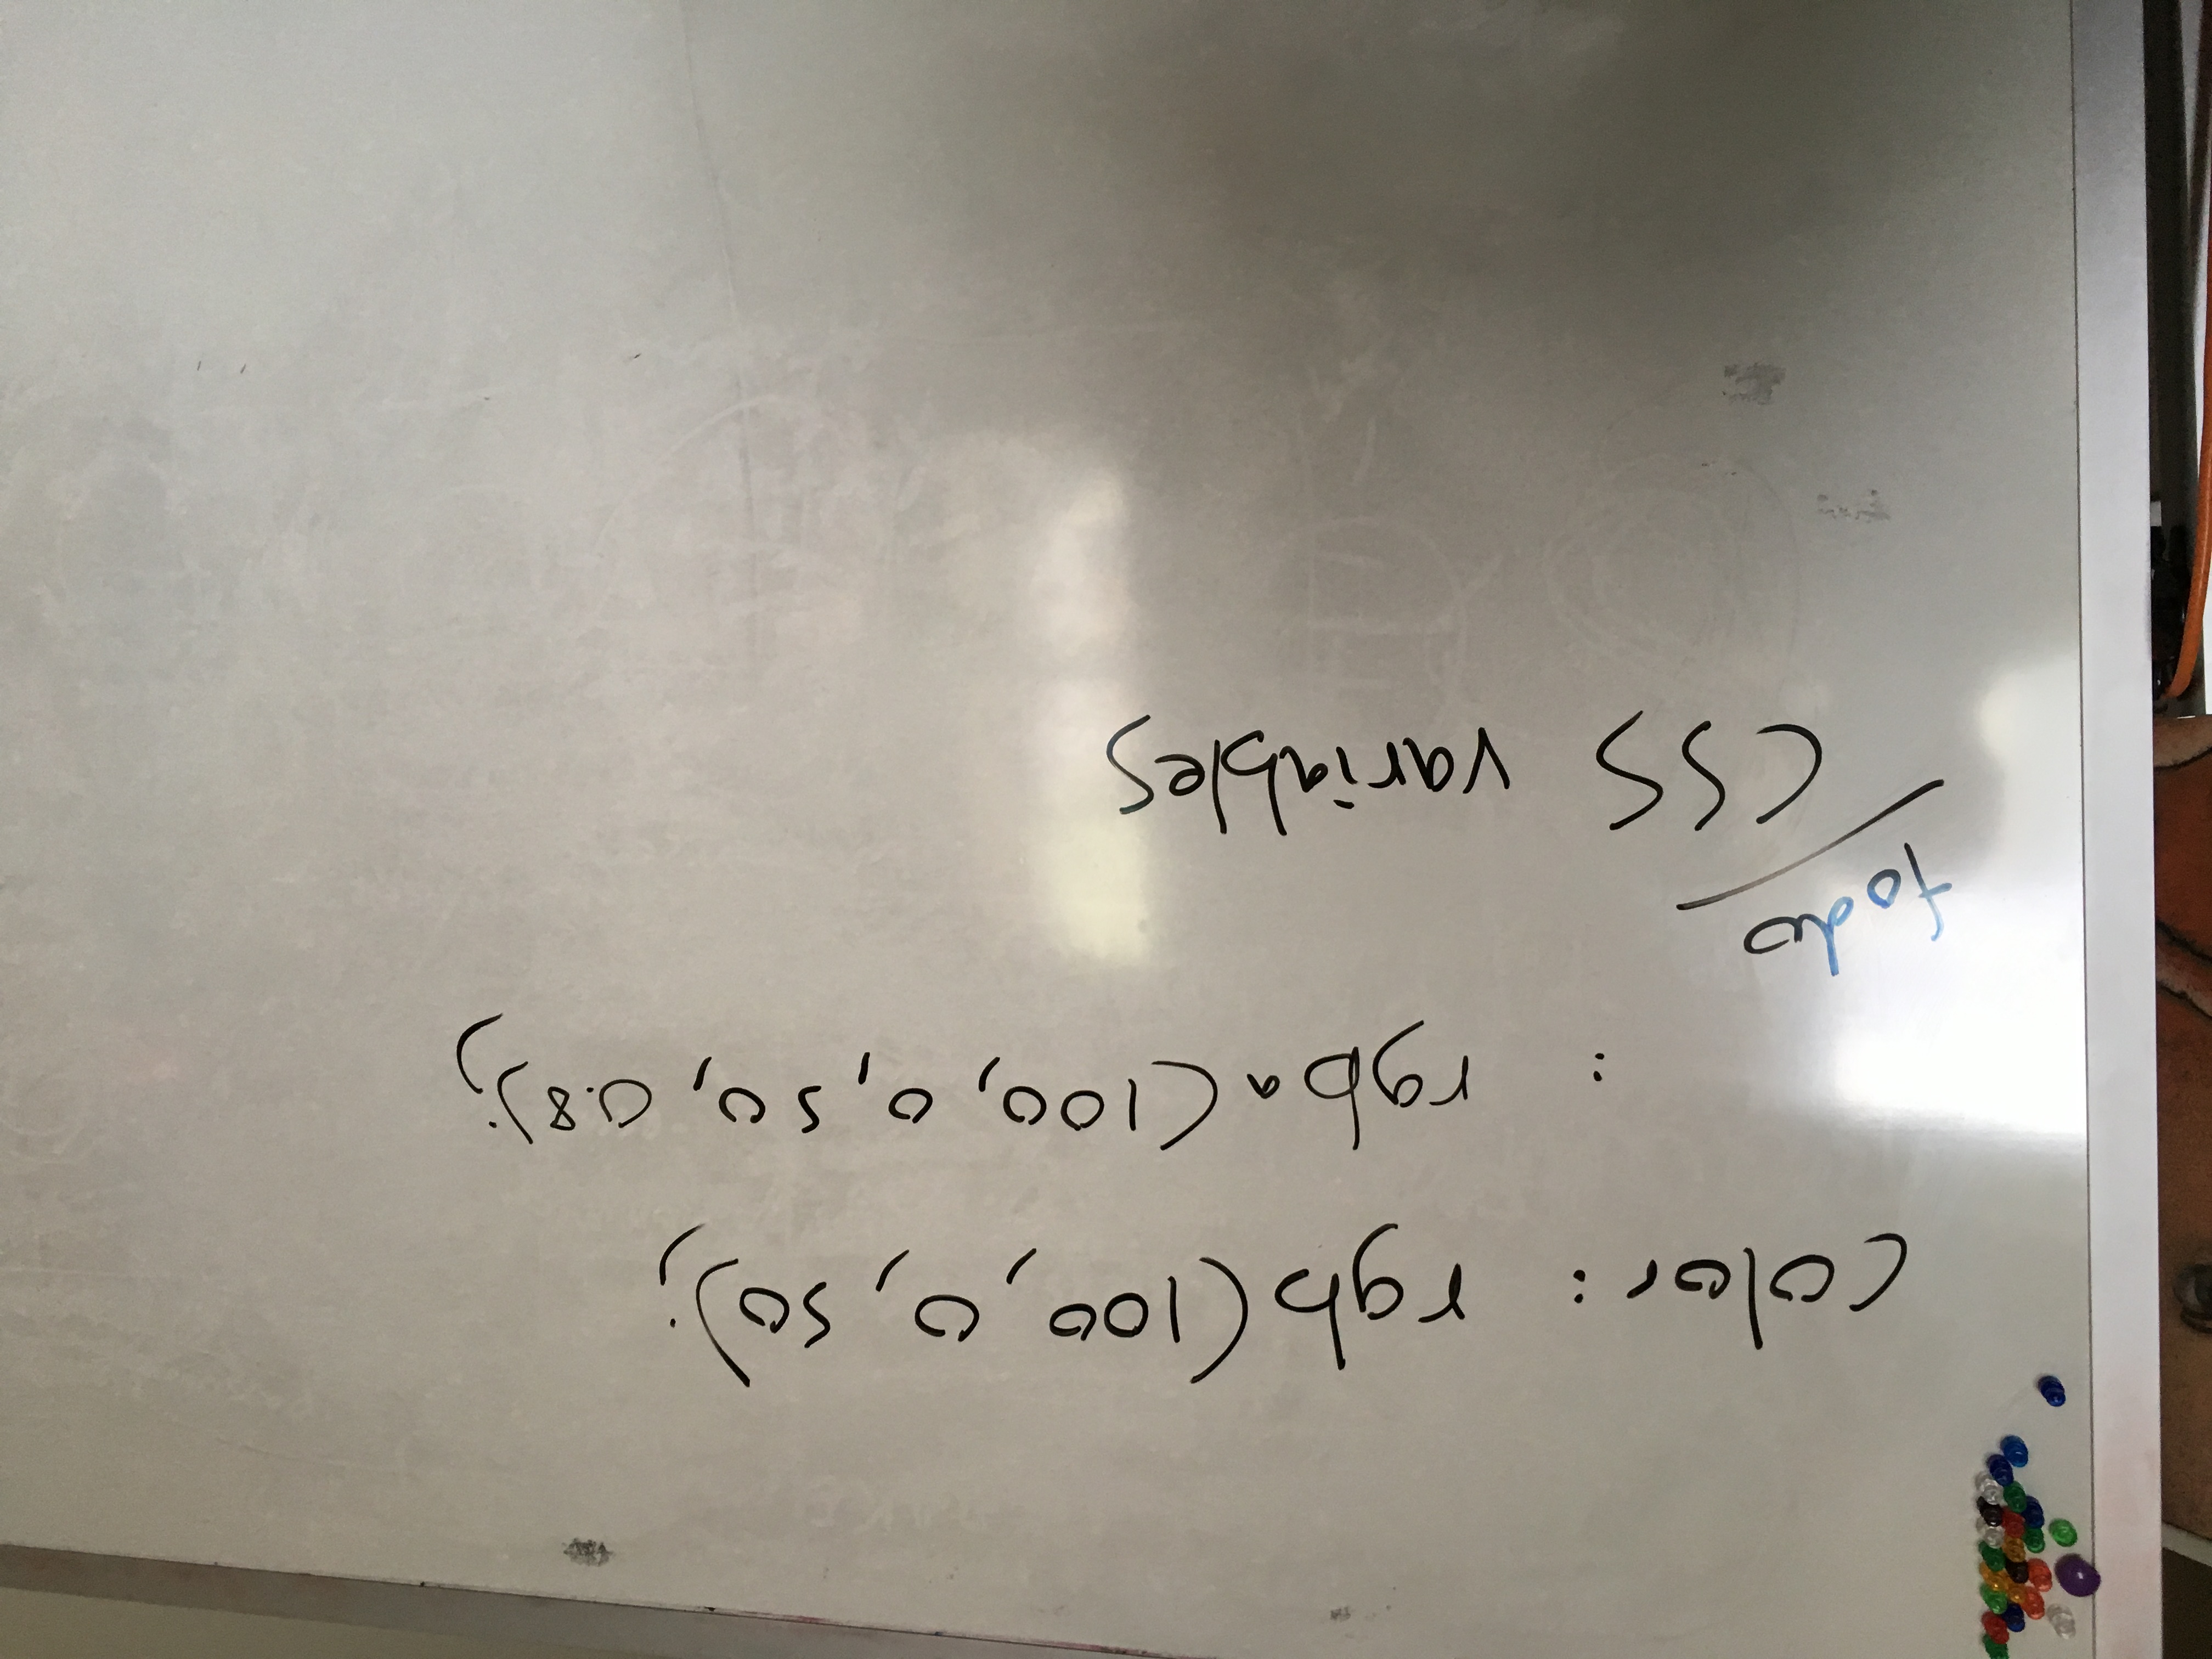 color: rgb(100, 0, 50);
: rgba(100, 0, 50, 0.8);
todo
CSS variables